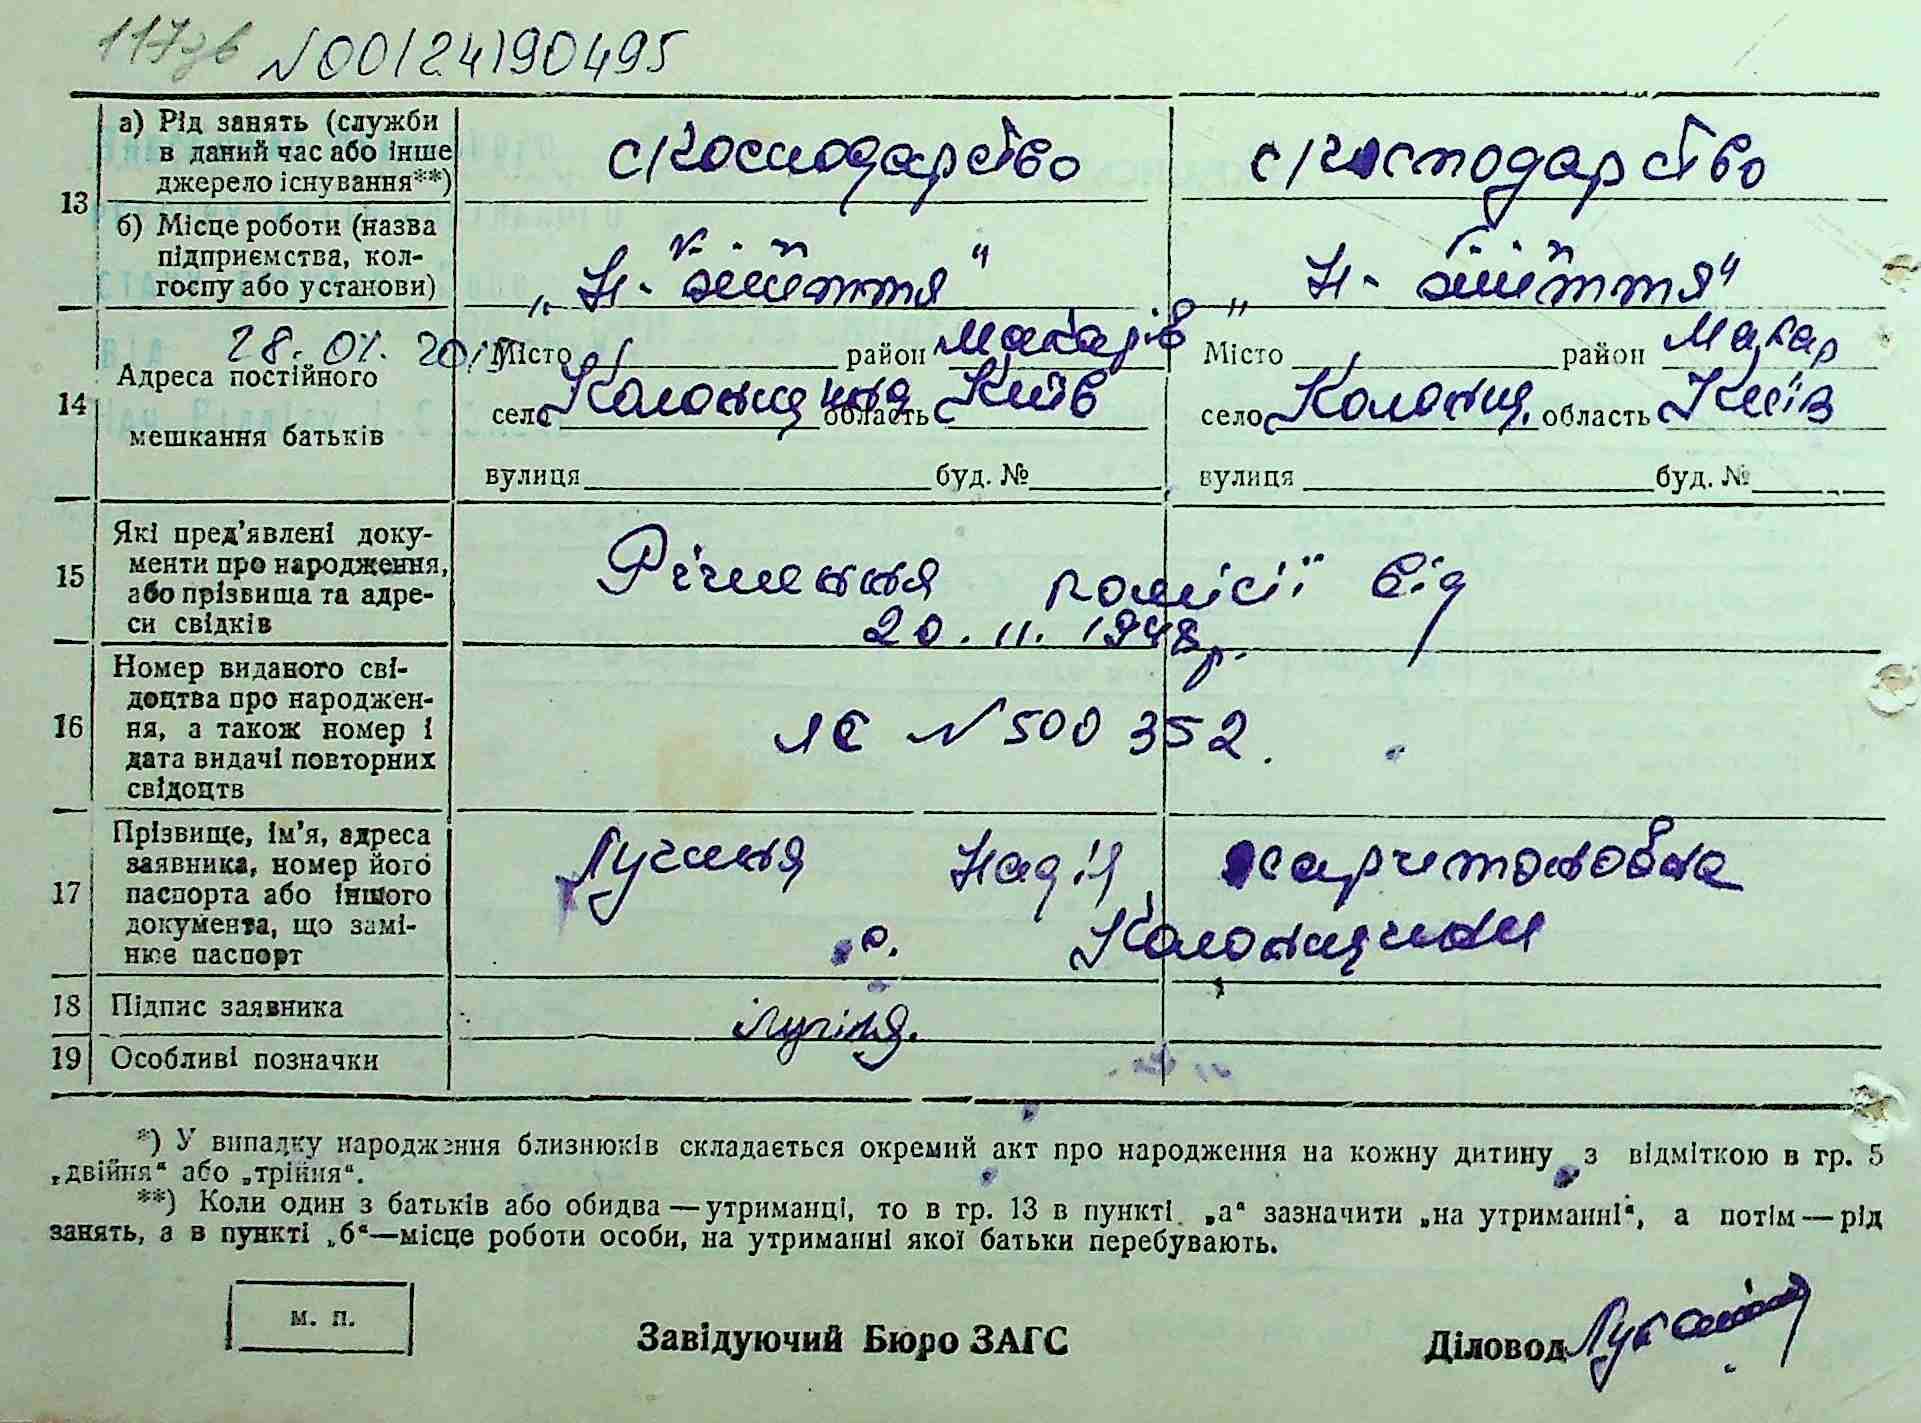 117зв N00124190495
13
а) Рід занять (служби в даний час або інше джерело існування**)
с/господарство
с/господарство
б) Місце роботи (назва підприємства, колгоспу або установи)
К-п „Н-життя“
К-п „Н-життя“
28.01.2015
14
Адреса постійного мешкання батьків
Місто / район Макарів
село Колонщина область Київ
вулиця буд. №
Місто / район Макар
село Колонщ. область Київ
вулиця буд. №
15
Які пред’явлені документи про народження, або прізвища та адреси свідків
Рішення комісії від
20.11.1948р.
16
Номер виданого свідоцтва про народження, а також номер і дата видачі повторних свідоцтв
ЯЄ N 500352.
17
Прізвище, ім’я, адреса заявника, номер його паспорта або іншого документа, що замінює паспорт
Лучина Надія Харитоновна
с. Колонщина
18
Підпис заявника
19
Особливі позначки
*) У випадку народження близнюків складається окремий акт про народження на кожну дитину з відміткою в гр. 5
„двійня“ або „трійня“.
**) Коли один з батьків або обидва—утриманці, то в гр. 13 в пункті „а“ зазначити „на утриманні“, а потім—рід
занять, а в пункті „б“—місце роботи особи, на утриманні якої батьки перебувають.
м. п.
Завідуючий Бюро ЗАГС
Діловод